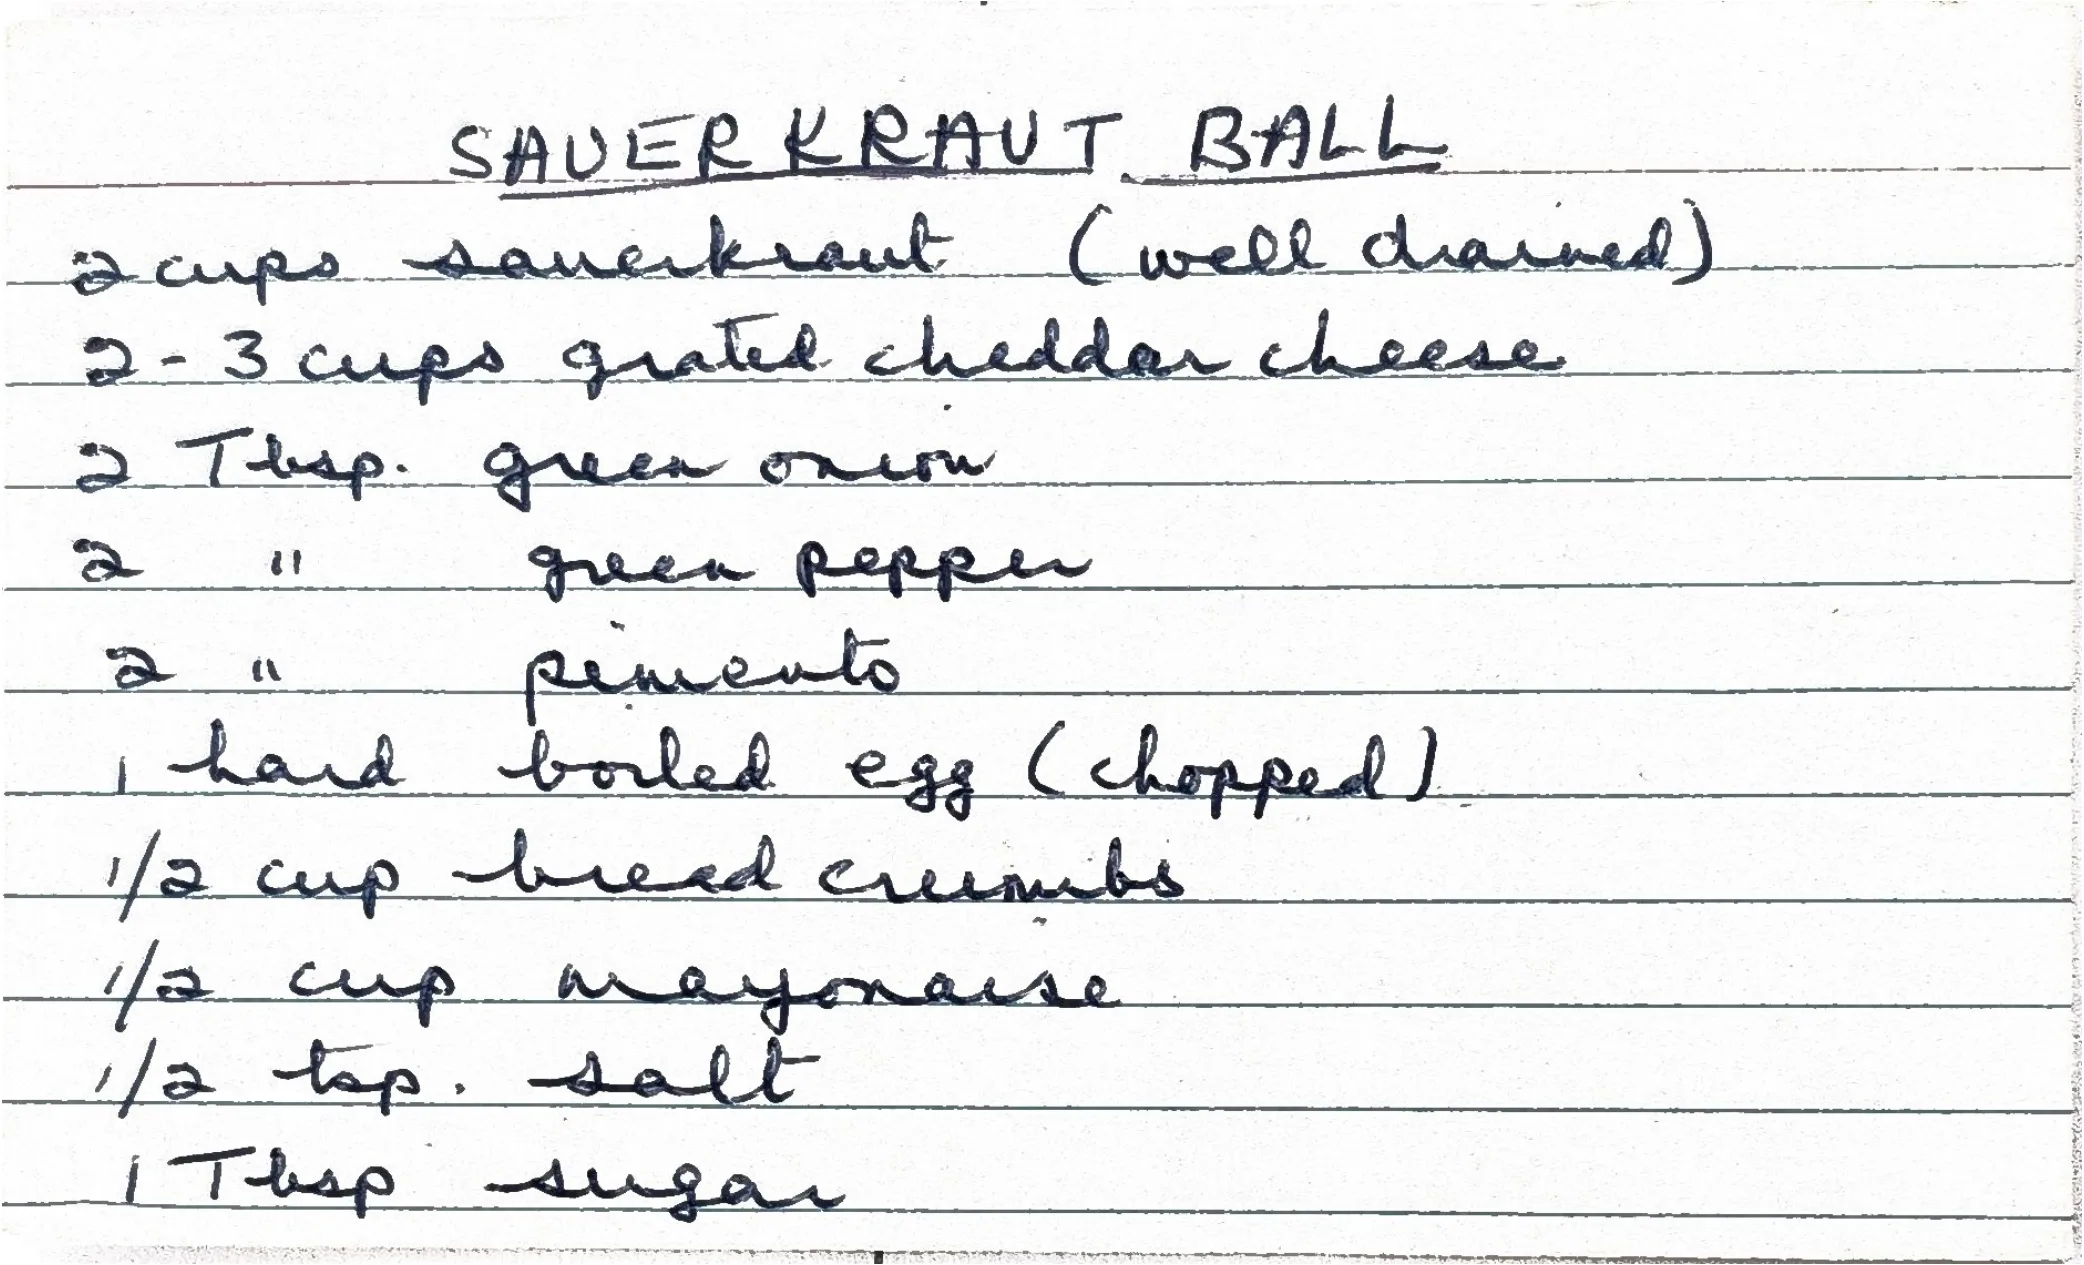 SAUERKRAUT BALL
2 cups sauerkraut (well drained)
2-3 cups grated cheddar cheese
2 Tbsp. green onion
2 " green pepper
2 " pimento
1 hard boiled egg (chopped)
1/2 cup bread crumbs
1/2 cup mayonaise
1/2 tsp. salt
1 Tbsp sugar